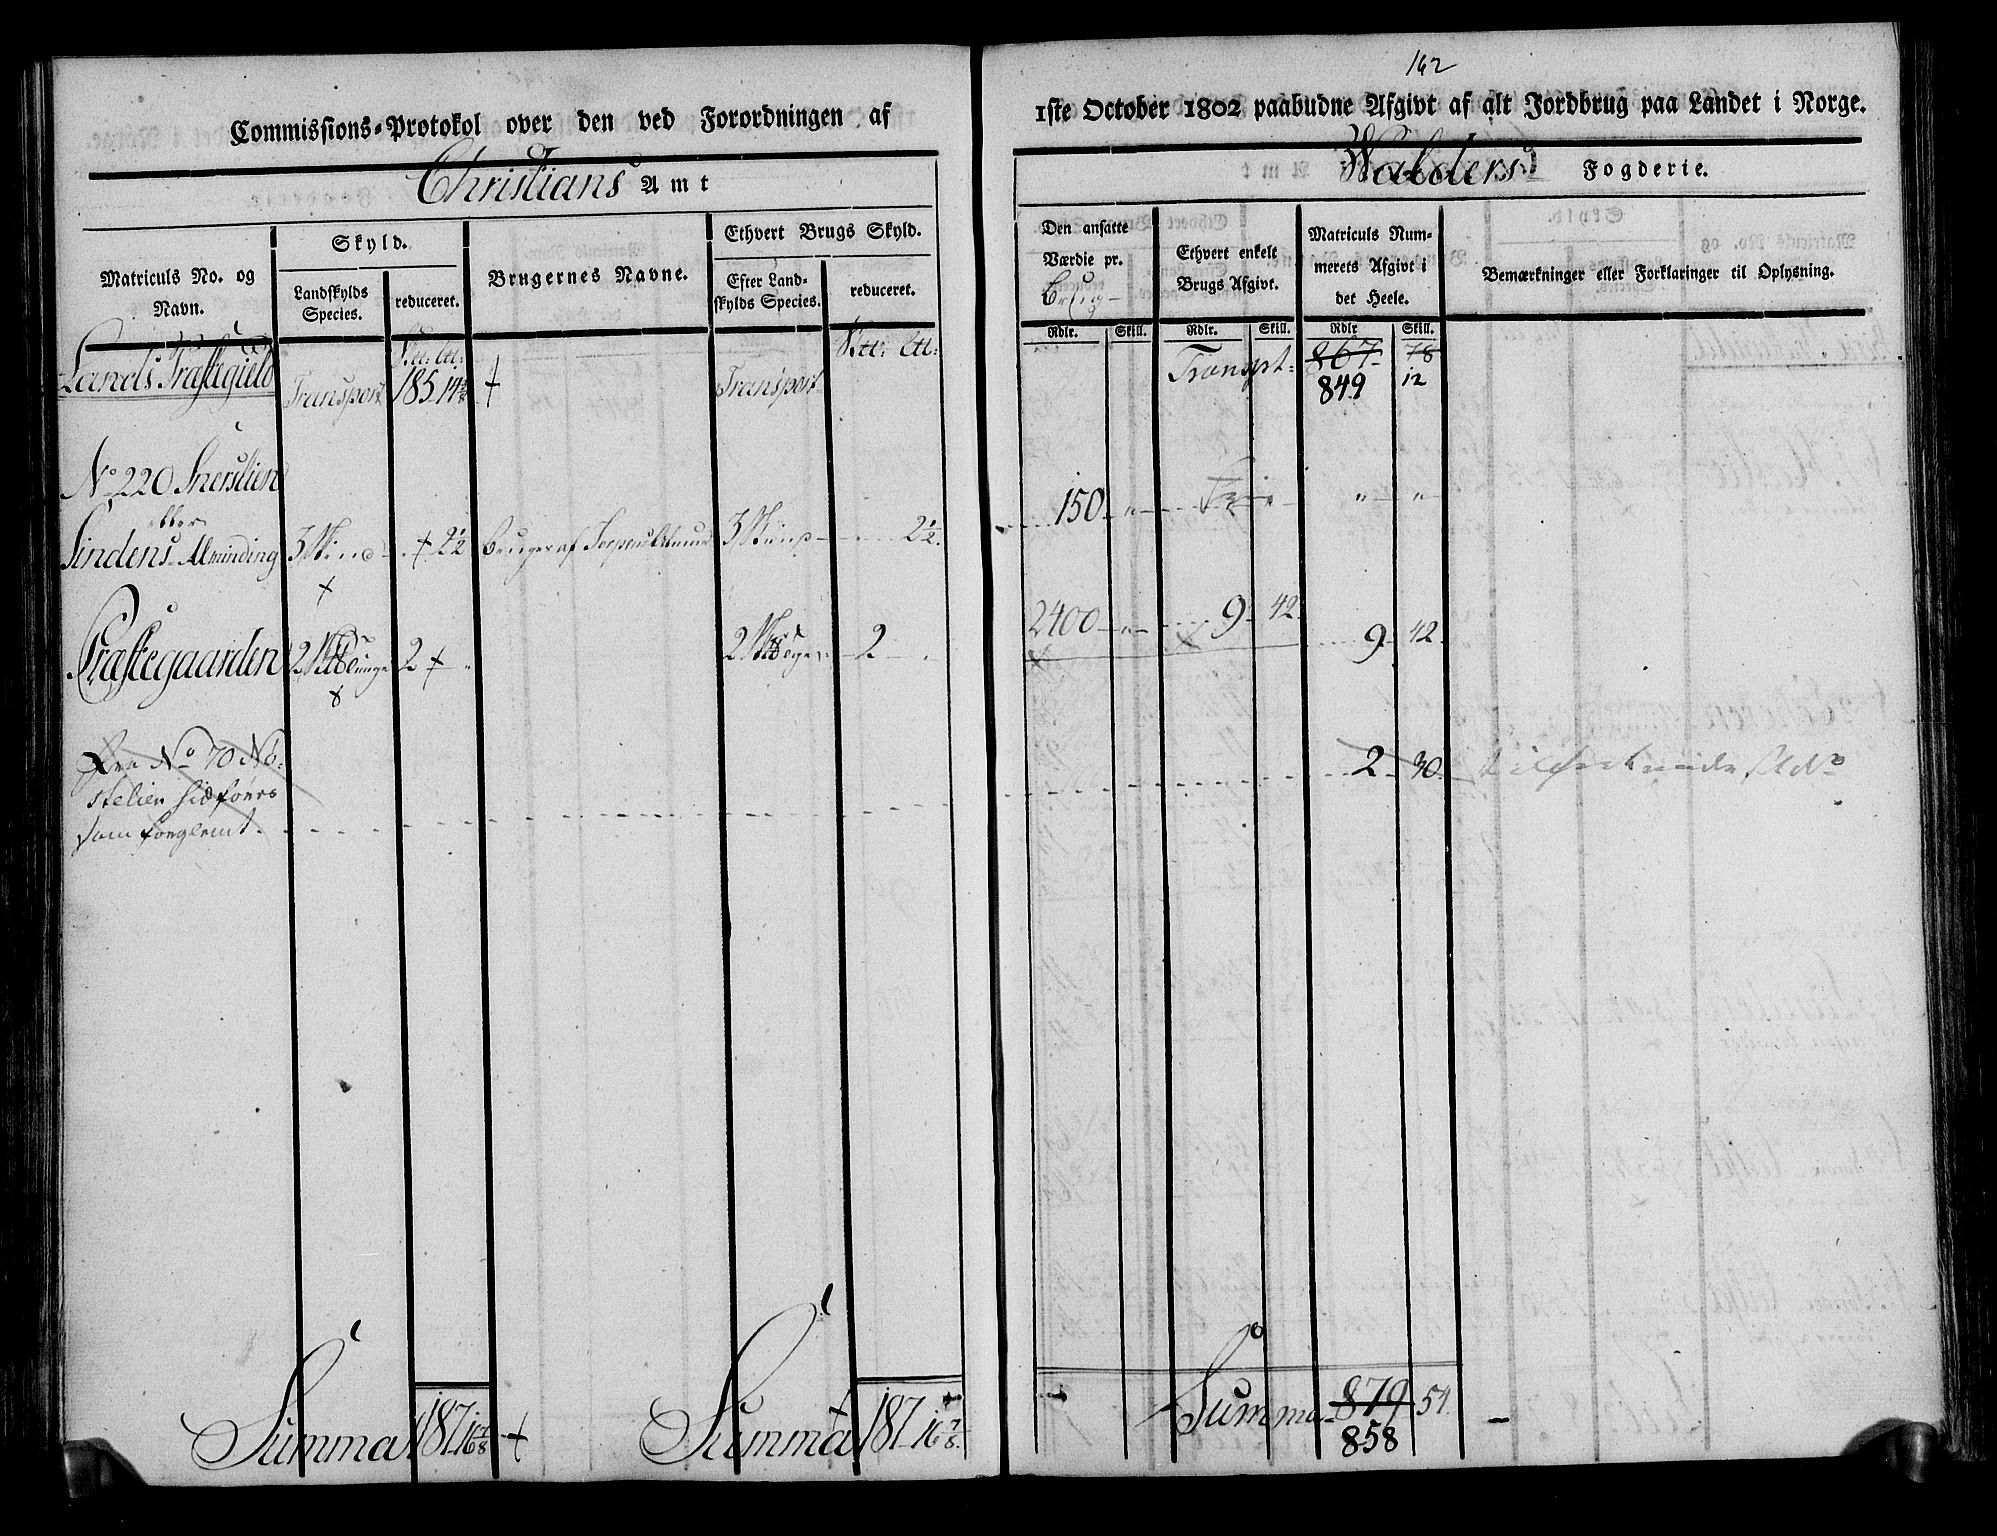 162
Commissions-Protokol over den ved Forordningen af
1ste October 1802 paabudne Afgivt af alt Jordbrug paa Landet i Norge.
Christians Amt
Walders Fogderie.
Matriculs No. og Navn.
Skyld.
Landskylds Species.
reduceret.
Brugernes Navne.
Ethvert Brugs Skyld.
Efter Landskylds Species.
reduceret.
Den ansatte Værdie pr. Brug
Rdlr. Skill.
Ethvert enkelt Brugs Afgivt.
Rdlr. Skill.
Matriculs Nummerets Afgivt i det Heele.
Rdlr Skill.
Bemærkninger eller Forklaringer til Oplysning.
Lands Præstegield Transport 185 14 Transport Transprt: 867 78
849 12
No 220
eller
Lindens Alminding 3 Skind 2½ Bruges af 3 Skind 2½. 150 Frie " "
Præstegaarden 2 2 2 2 2400 9 42
9 42
Fra No 70
som forglemt. 2 30
Summa 187 16⅞ Summa 187 16⅞. Summa 879 54
858